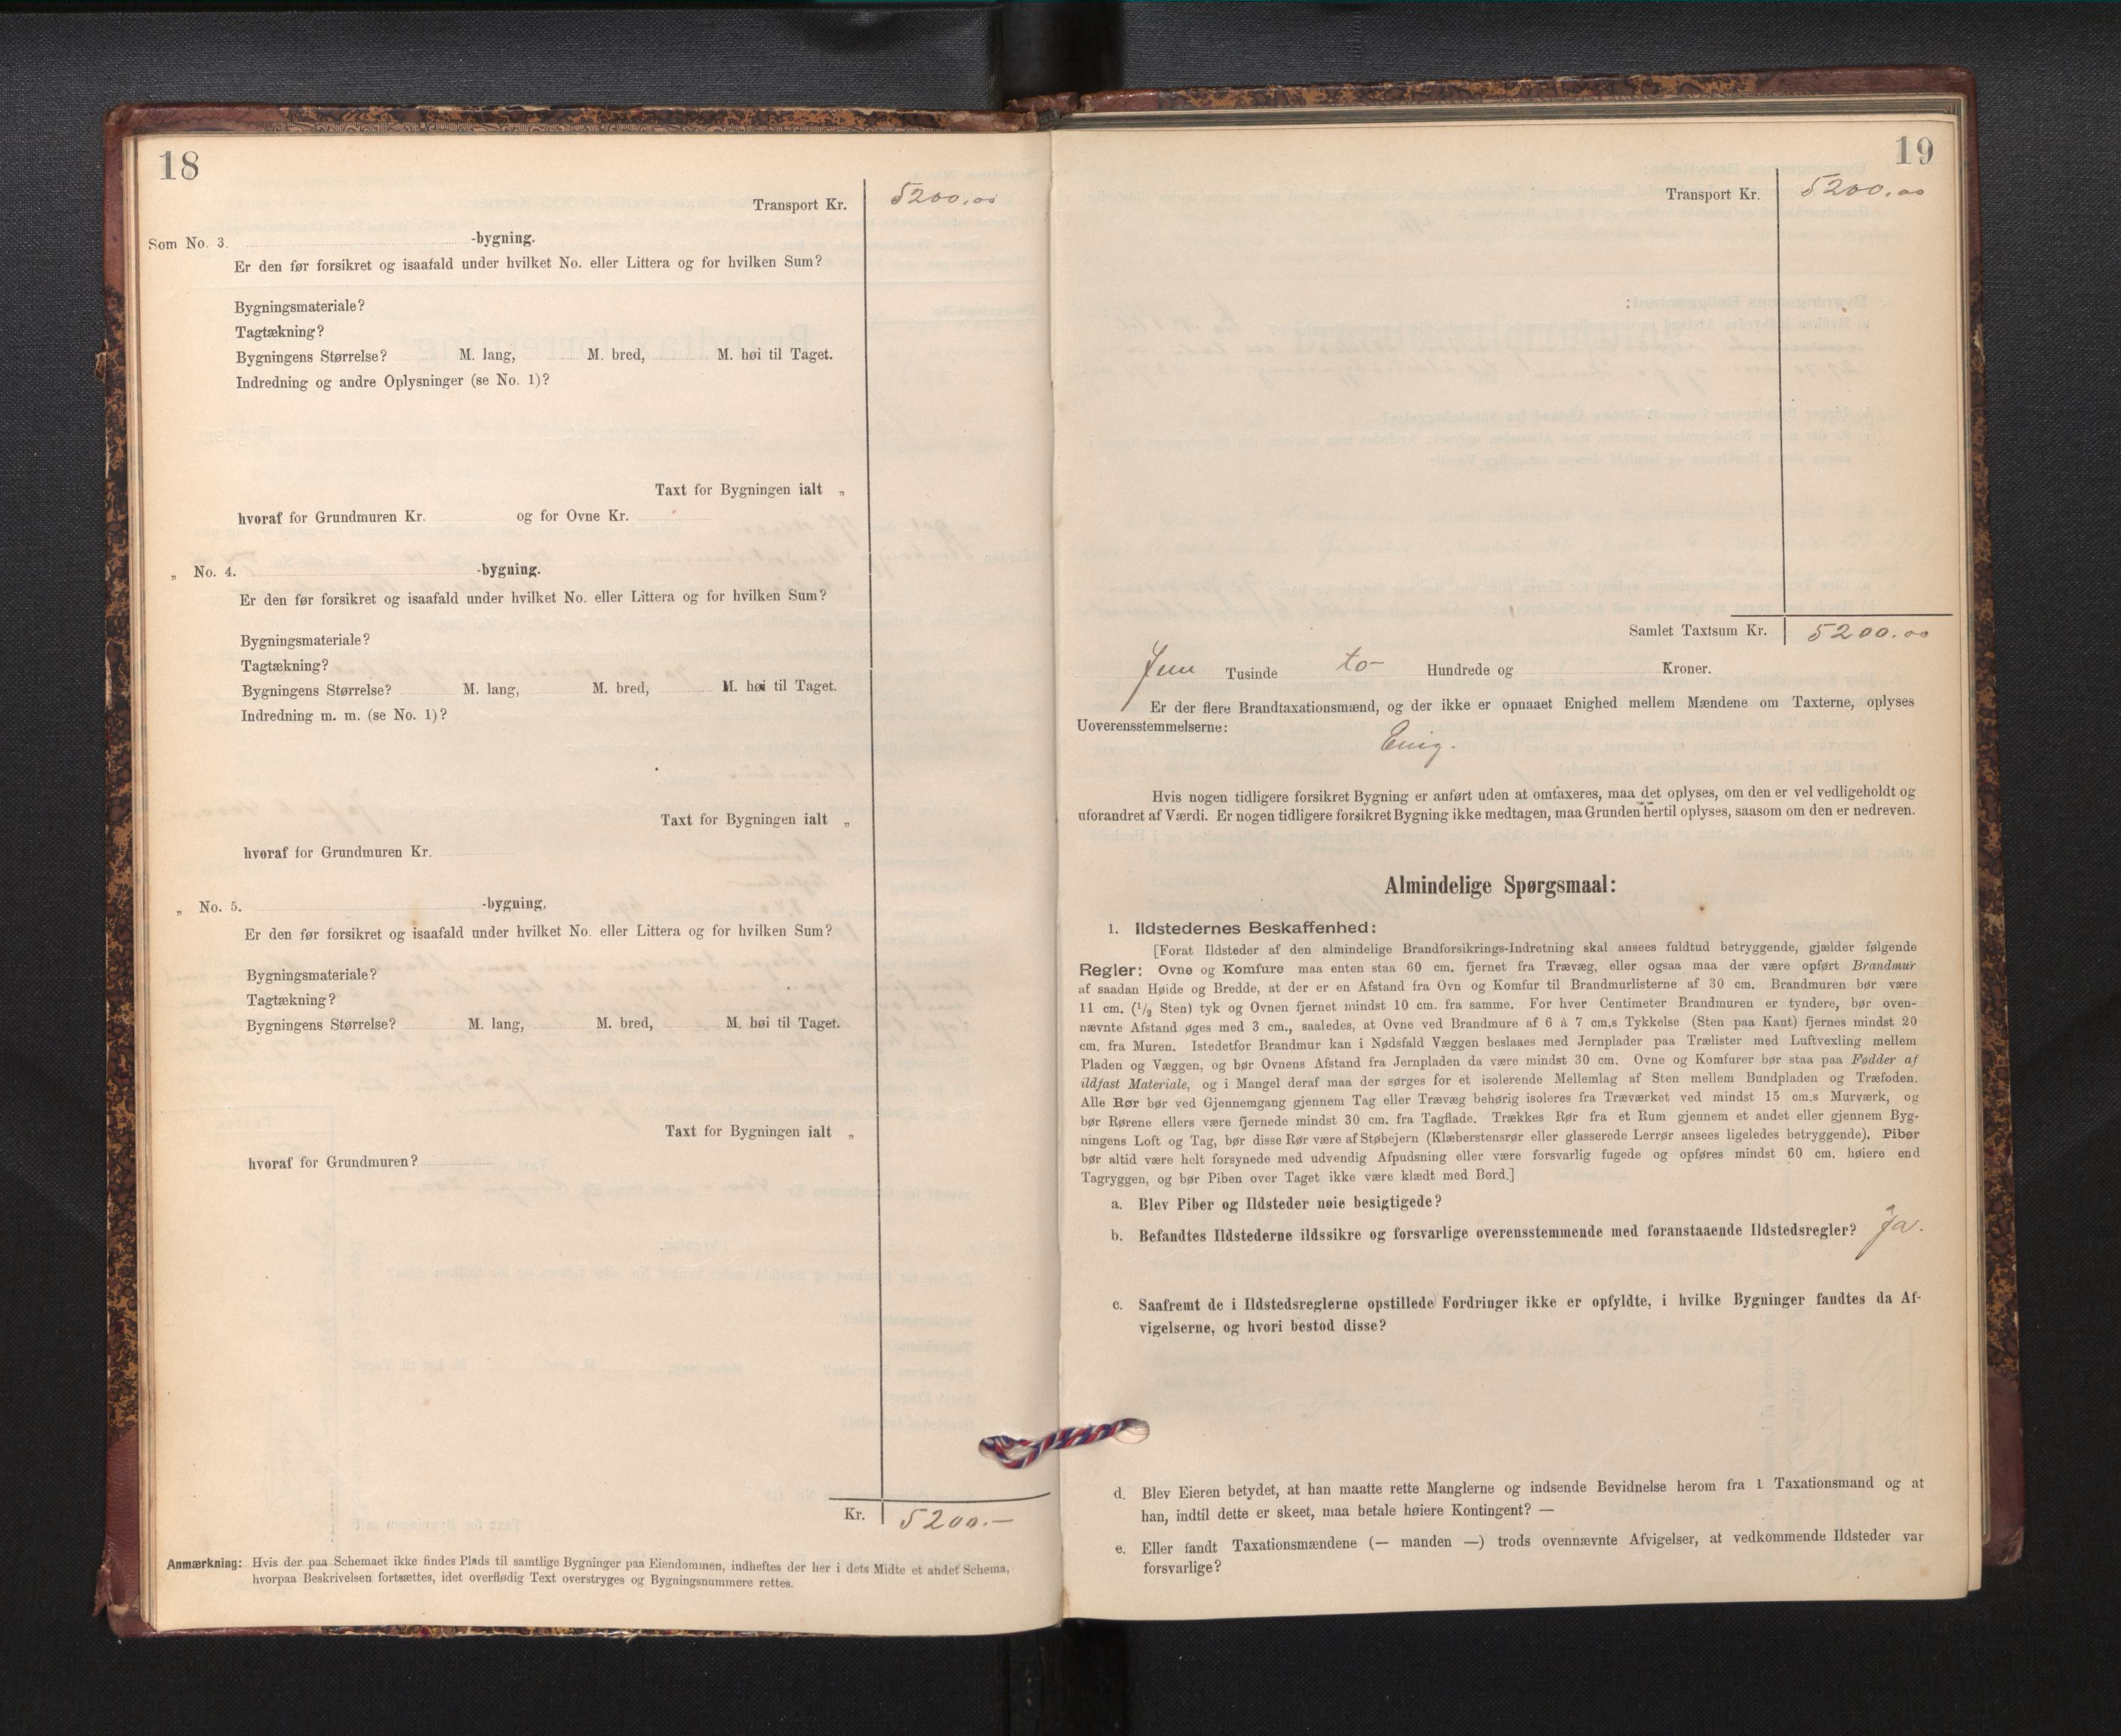 18
Transport Kr. 5200.00
Som No. 3. -bygning.
Er den før forsikret og isaafald under hvilket No. eller Littera og for hvilken Sum?
Bygningsmateriale?
Tagtækning?
Bygningens Størrelse? M. lang, M. bred, M. høi til Taget.
Indredning og andre Oplysninger (se No. 1)?
Taxt for Bygningen ialt „
hvoraf for Grundmuren Kr. og for Ovne Kr.
„ No. 4. -bygning.
Er den før forsikret og isaafald under hvilket No. eller Littera og for hvilken Sum?
Bygningsmateriale?
Tagtækning?
Bygningens Størrelse? M. lang, M. bred, M. høi til Taget.
Indredning m. m. (se No. 1)?
Taxt for Bygningen ialt „
hvoraf for Grundmuren Kr.
„ No. 5. -bygning,
Er den før forsikret og isaafald under hvilket No. eller Littera og for hvilken Sum?
Bygningsmateriale?
Tagtækning?
Bygningens Størrelse? M. lang, M. bred, M. høi til Taget.
Taxt for Bygningen ialt „
hvoraf for Grundmuren?
Kr. 5200.—
Anmærkning: Hvis der paa Schemaet ikke findes Plads til samtlige Bygninger paa Eiendommen, indheftes der her i dets Midte et andet Schema,
hvorpaa Beskrivelsen fortsættes, idet overflødig Text overstryges og Bygningsnummere rettes.
19
Transport Kr. 5200.00
Samlet Taxtsum Kr. 5200.00
Fem Tusinde to- Hundrede og Kroner.
Er der flere Brandtaxationsmænd, og der ikke er opnaaet Enighed mellem Mændene om Taxterne, oplyses
Uoverensstemmelserne:
Enig.
Hvis nogen tidligere forsikret Bygning er anført uden at omtaxeres, maa det oplyses, om den er vel vedligeholdt og
uforandret af Værdi. Er nogen tidligere forsikret Bygning ikke medtagen, maa Grunden hertil oplyses, saasom om den er nedreven.
Almindelige Spørgsmaal:
1. Ildstedernes Beskaffenhed:
[Forat Ildsteder af den almindelige Brandforsikrings-Indretning skal ansees fuldtud betryggende, gjælder følgende
Regler: Ovne og Komfure maa enten staa 60 cm. fjernet fra Trævæg, eller ogsaa maa der være opført Brandmur
af saadan Høide og Bredde, at der er en Afstand fra Ovn og Komfur til Brandmurlisterne af 30 cm. Brandmuren bør være
11 cm. (1/2 Sten) tyk og Ovnen fjernet mindst 10 cm. fra samme. For hver Centimeter Brandmuren er tyndere, bør oven-
nævnte Afstand øges med 3 cm., saaledes, at Ovne ved Brandmure af 6 à 7 cm.s Tykkelse (Sten paa Kant) fjernes mindst 20
cm. fra Muren. Istedetfor Brandmur kan i Nødsfald Væggen beslaaes med Jernplader paa Trælister med Luftvexling mellem
Pladen og Væggen, og bør Ovnens Afstand fra Jernpladen da være mindst 30 cm. Ovne og Komfurer bør staa paa Fødder af
ildfast Materiale, og i Mangel deraf maa der sørges for et isolerende Mellemlag af Sten mellem Bundpladen og Træfoden.
Alle Rør bør ved Gjennemgang gjennem Tag eller Trævæg behørig isoleres fra Træværket ved mindst 15 cm.s Murværk, og
bør Rørene ellers være fjernede mindst 30 cm. fra Tagflade. Trækkes Rør fra et Rum gjennem et andet eller gjennem Byg-
ningens Loft og Tag, bør disse Rør være af Støbejern (Klæberstensrør eller glasserede Lerrør ansees ligeledes betryggende). Piber
bør altid være helt forsynede med udvendig Afpudsning eller være forsvarlig fugede og opføres mindst 60 cm. høiere end
Tagryggen, og bør Piben over Taget ikke være klædt med Bord.]
a. Blev Piber og Ildsteder nøie besigtigede?
b. Befandtes Ildstederne ildssikre og forsvarlige overensstemmende med foranstaaende Ildstedsregler? Ja.
c. Saafremt de i Ildstedsreglerne opstillede Fordringer ikke er opfyldte, i hvilke Bygninger fandtes da Af-
vigelserne, og hvori bestod disse?
d. Blev Eieren betydet, at han maatte rette Manglerne og indsende Bevidnelse herom fra 1 Taxationsmand og at
han, indtil dette er skeet, maa betale høiere Kontingent? —
e. Eller fandt Taxationsmændene (— manden —) trods ovennævnte Afvigelser, at vedkommende Ildsteder var
forsvarlige?